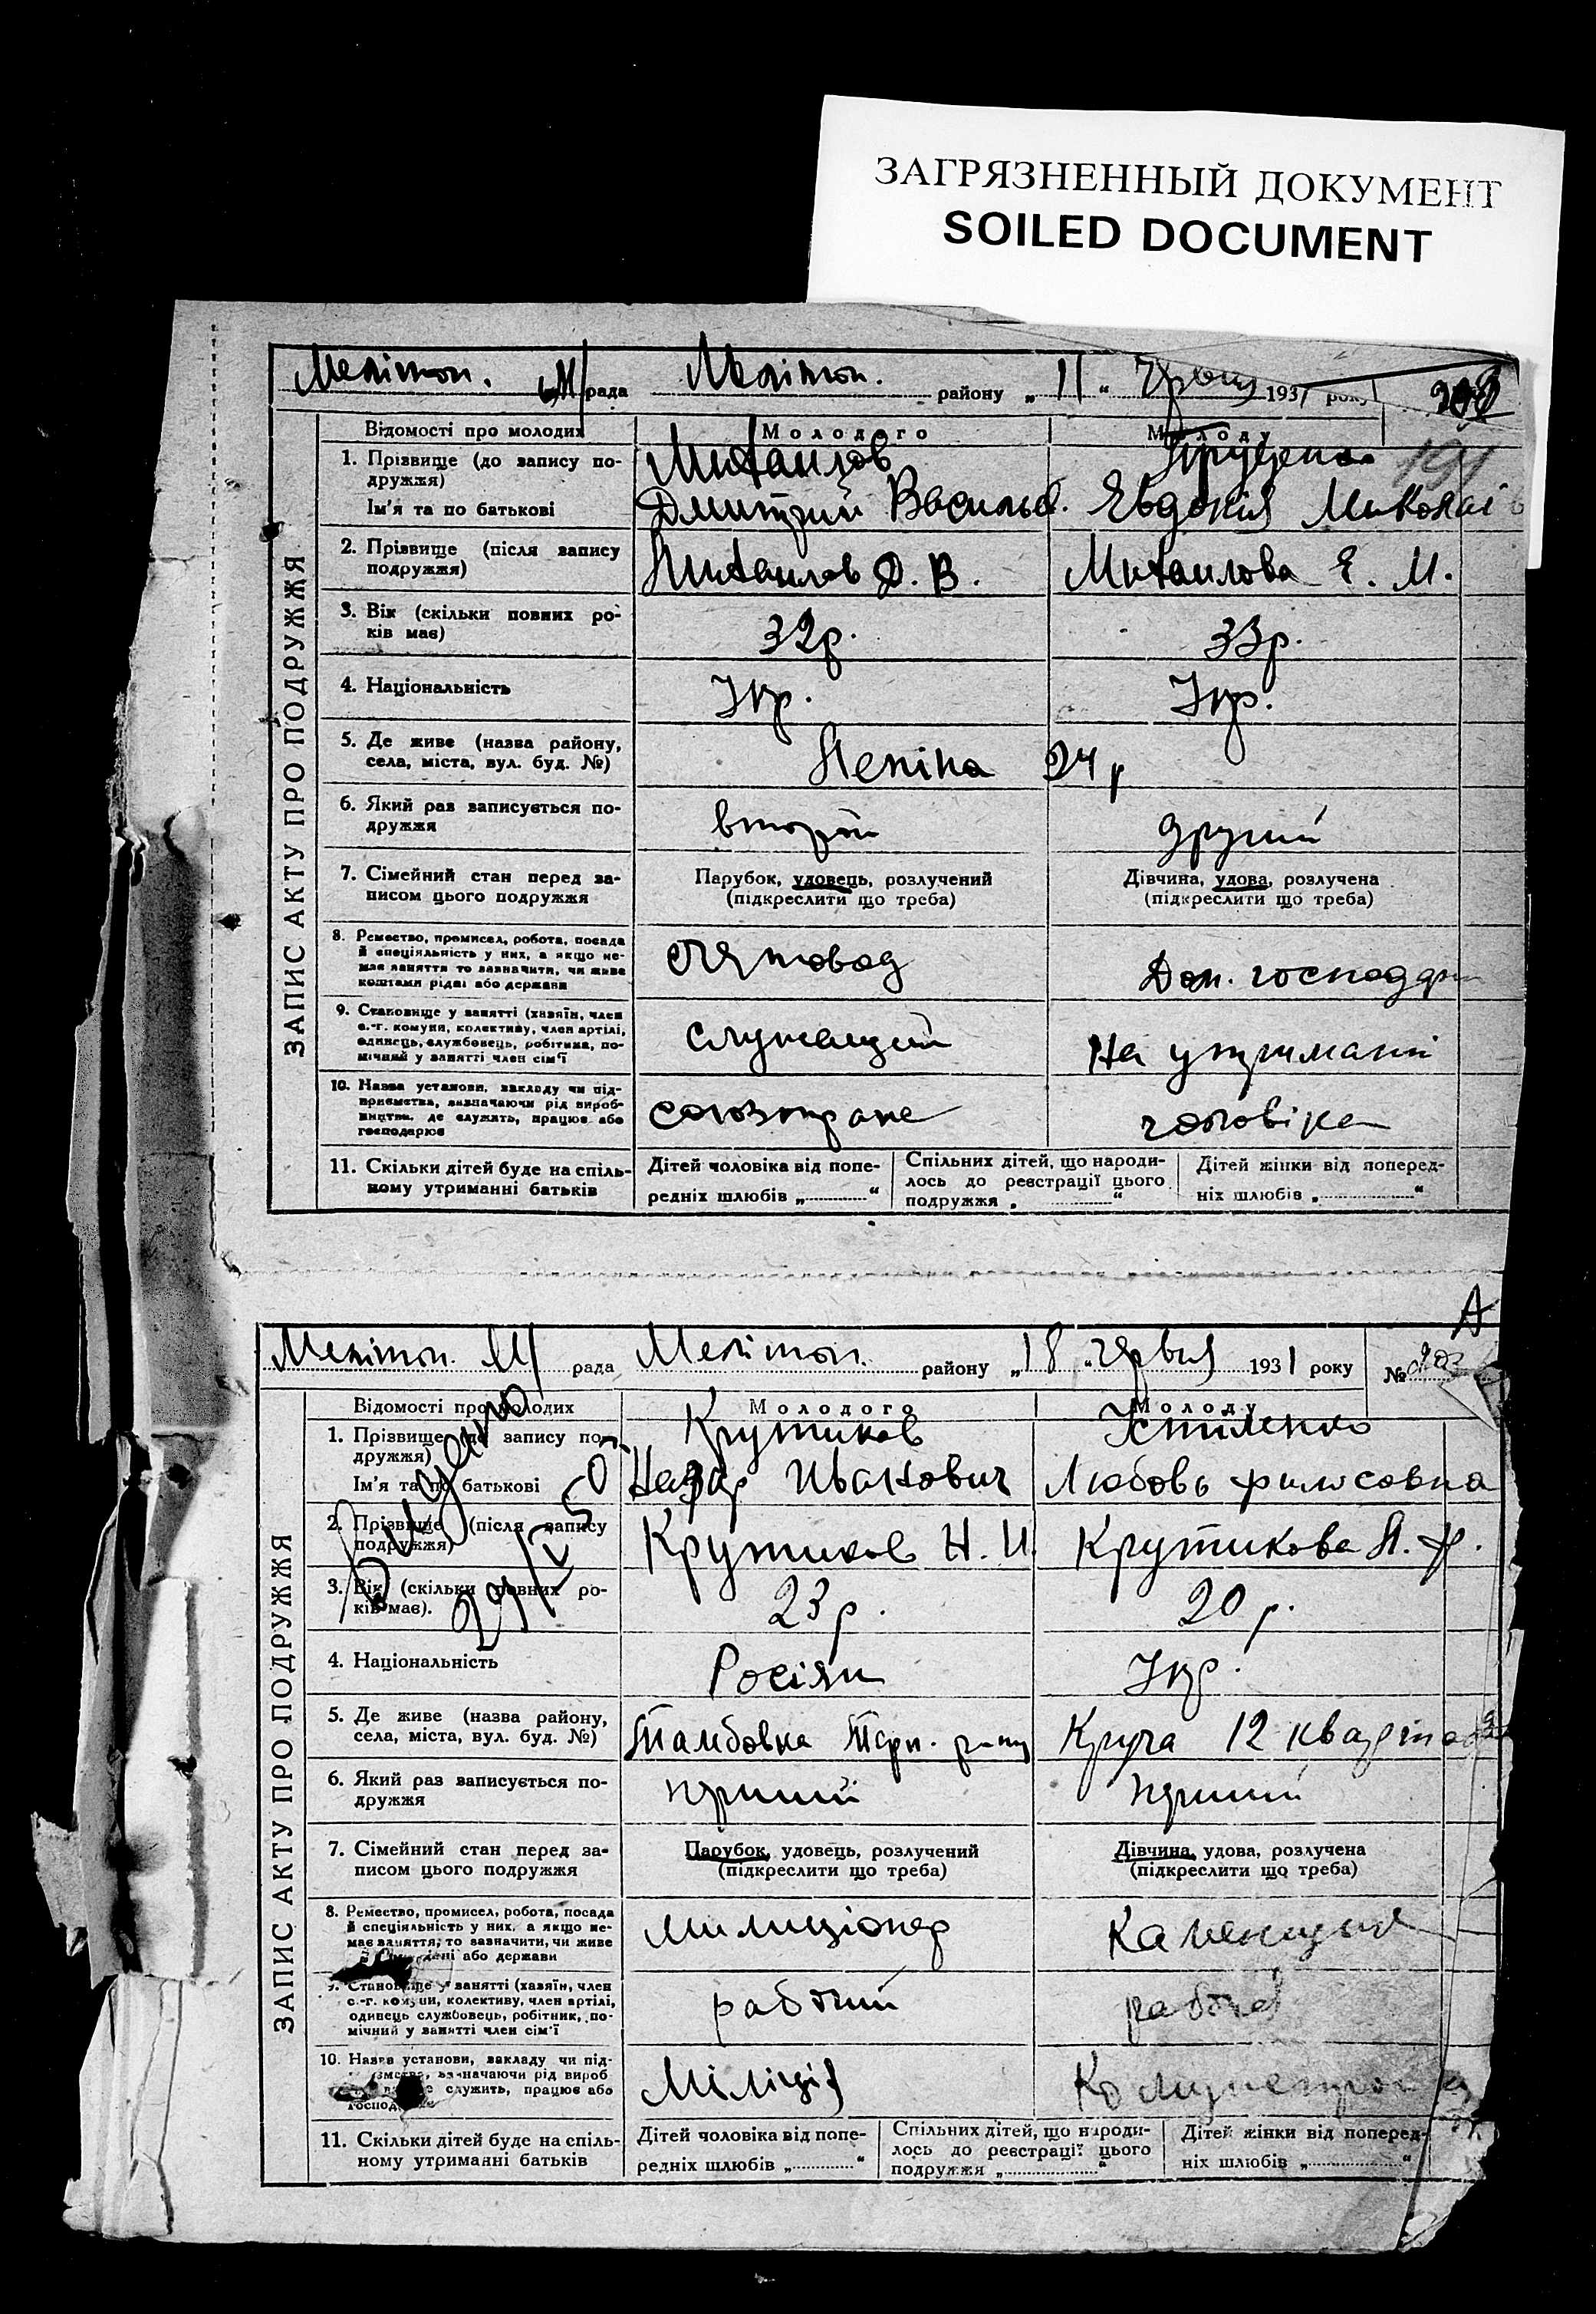 ЗАГРЯЗНЕННЫЙ ДОКУМЕНТ
SOILED DOCUMENT
ЗАПИС АКТУ ПРО ПОДРУЖЖЯ
Мелітоп. М/ рада Мелітоп. району „11“ червня 1931 року
191
Відомості про молодих Молодого Молоду
1. Прізвище (до запису по- Михаилов
дружжя)
Ім'я та по батькові Дмитрий Васильев. Евдокія Миколаї
2. Прізвище (після запису
подружжя) Михаилов Д. В. Михаилова Е. М.
3. Вік (скільки повних ро-
ків має) 32р. 33р.
4. Національність Укр. Укр.
5. Де живе (назва району,
села, міста, вул. буд. №) Леніна 24
6. Який раз записується по-
дружжя второй другий
7. Сімейний стан перед за- Парубок, удовець, розлучений Дівчина, удова, розлучена
писом цього подружжя (підкреслити що треба) (підкреслити що треба)
8. Ремество, промисел, робота, посада
й спеціяльність у них, а якщо не-
має заняття то зазначити, чи живе
коштами рідні або держави счутовод Дом. господар
9. Становище у занятті (хазяїн, член
с.-г. комуни, колективу, член артілі,
одинець, службовець, робітник, по-
мічний у занятті член сім'ї служащий На утриманні
10. Назва установи, закладу чи під-
приємства, зазначаючи рід вироб-
ництва, де служить, працює або
господарює союзтранс чоловіка
11. Скільки дітей буде на спіль- Дітей чоловіка від попе- Спільних дітей, що народи- Дітей жінки від поперед-
ному утриманні батьків редніх шлюбів „ “ лось до реєстрації цього ніх шлюбів „ “
подружжя „ “
А
ЗАПИС АКТУ ПРО ПОДРУЖЖЯ
Мелітоп. М/ рада Мелітоп. району „18“ червня 1931 року № 203
Відомості про молодих Молодого Молоду
1. Прізвище до запису по- Крутиков Устименко
дружжя)
Ім'я та по батькові Назар Иванович Любовь Филисовна
2. Прізвище (після запису
подружжя) Крутиков Н. И. Крутикова Л. Ф.
3. Вік (скільки повних ро-
ків має). 23р. 20р.
4. Національність Росіян Укр.
5. Де живе (назва району,
села, міста, вул. буд. №) Тамбовка Круча 12 квартал
6. Який раз записується по-
дружжя перший перший
7. Сімейний стан перед за- Парубок, удовець, розлучений Дівчина, удова, розлучена
писом цього подружжя (підкреслити що треба) (підкреслити що треба)
8. Ремество, промисел, робота, посада
й спеціяльність у них, а якщо не-
має заняття, то зазначити, чи живе
рідні або держави милиціонер Каменщик
9. Становище у занятті (хазяїн, член
с.-г. комуни, колективу, член артілі,
одинець службовець, робітник, по-
мічний у занятті член сім'ї рабочий рабоча
10. Назва установи, закладу чи під-
приємства, зазначаючи рід вироб
служить, працює або
господарює Міліція
11. Скільки дітей буде на спіль- Дітей чоловіка від попе- Спільних дітей, що народи- Дітей жінки від поперед-
ному утриманні батьків редніх шлюбів „ “ лось до реєстрації цього ніх шлюбів „ “
подружжя „ “